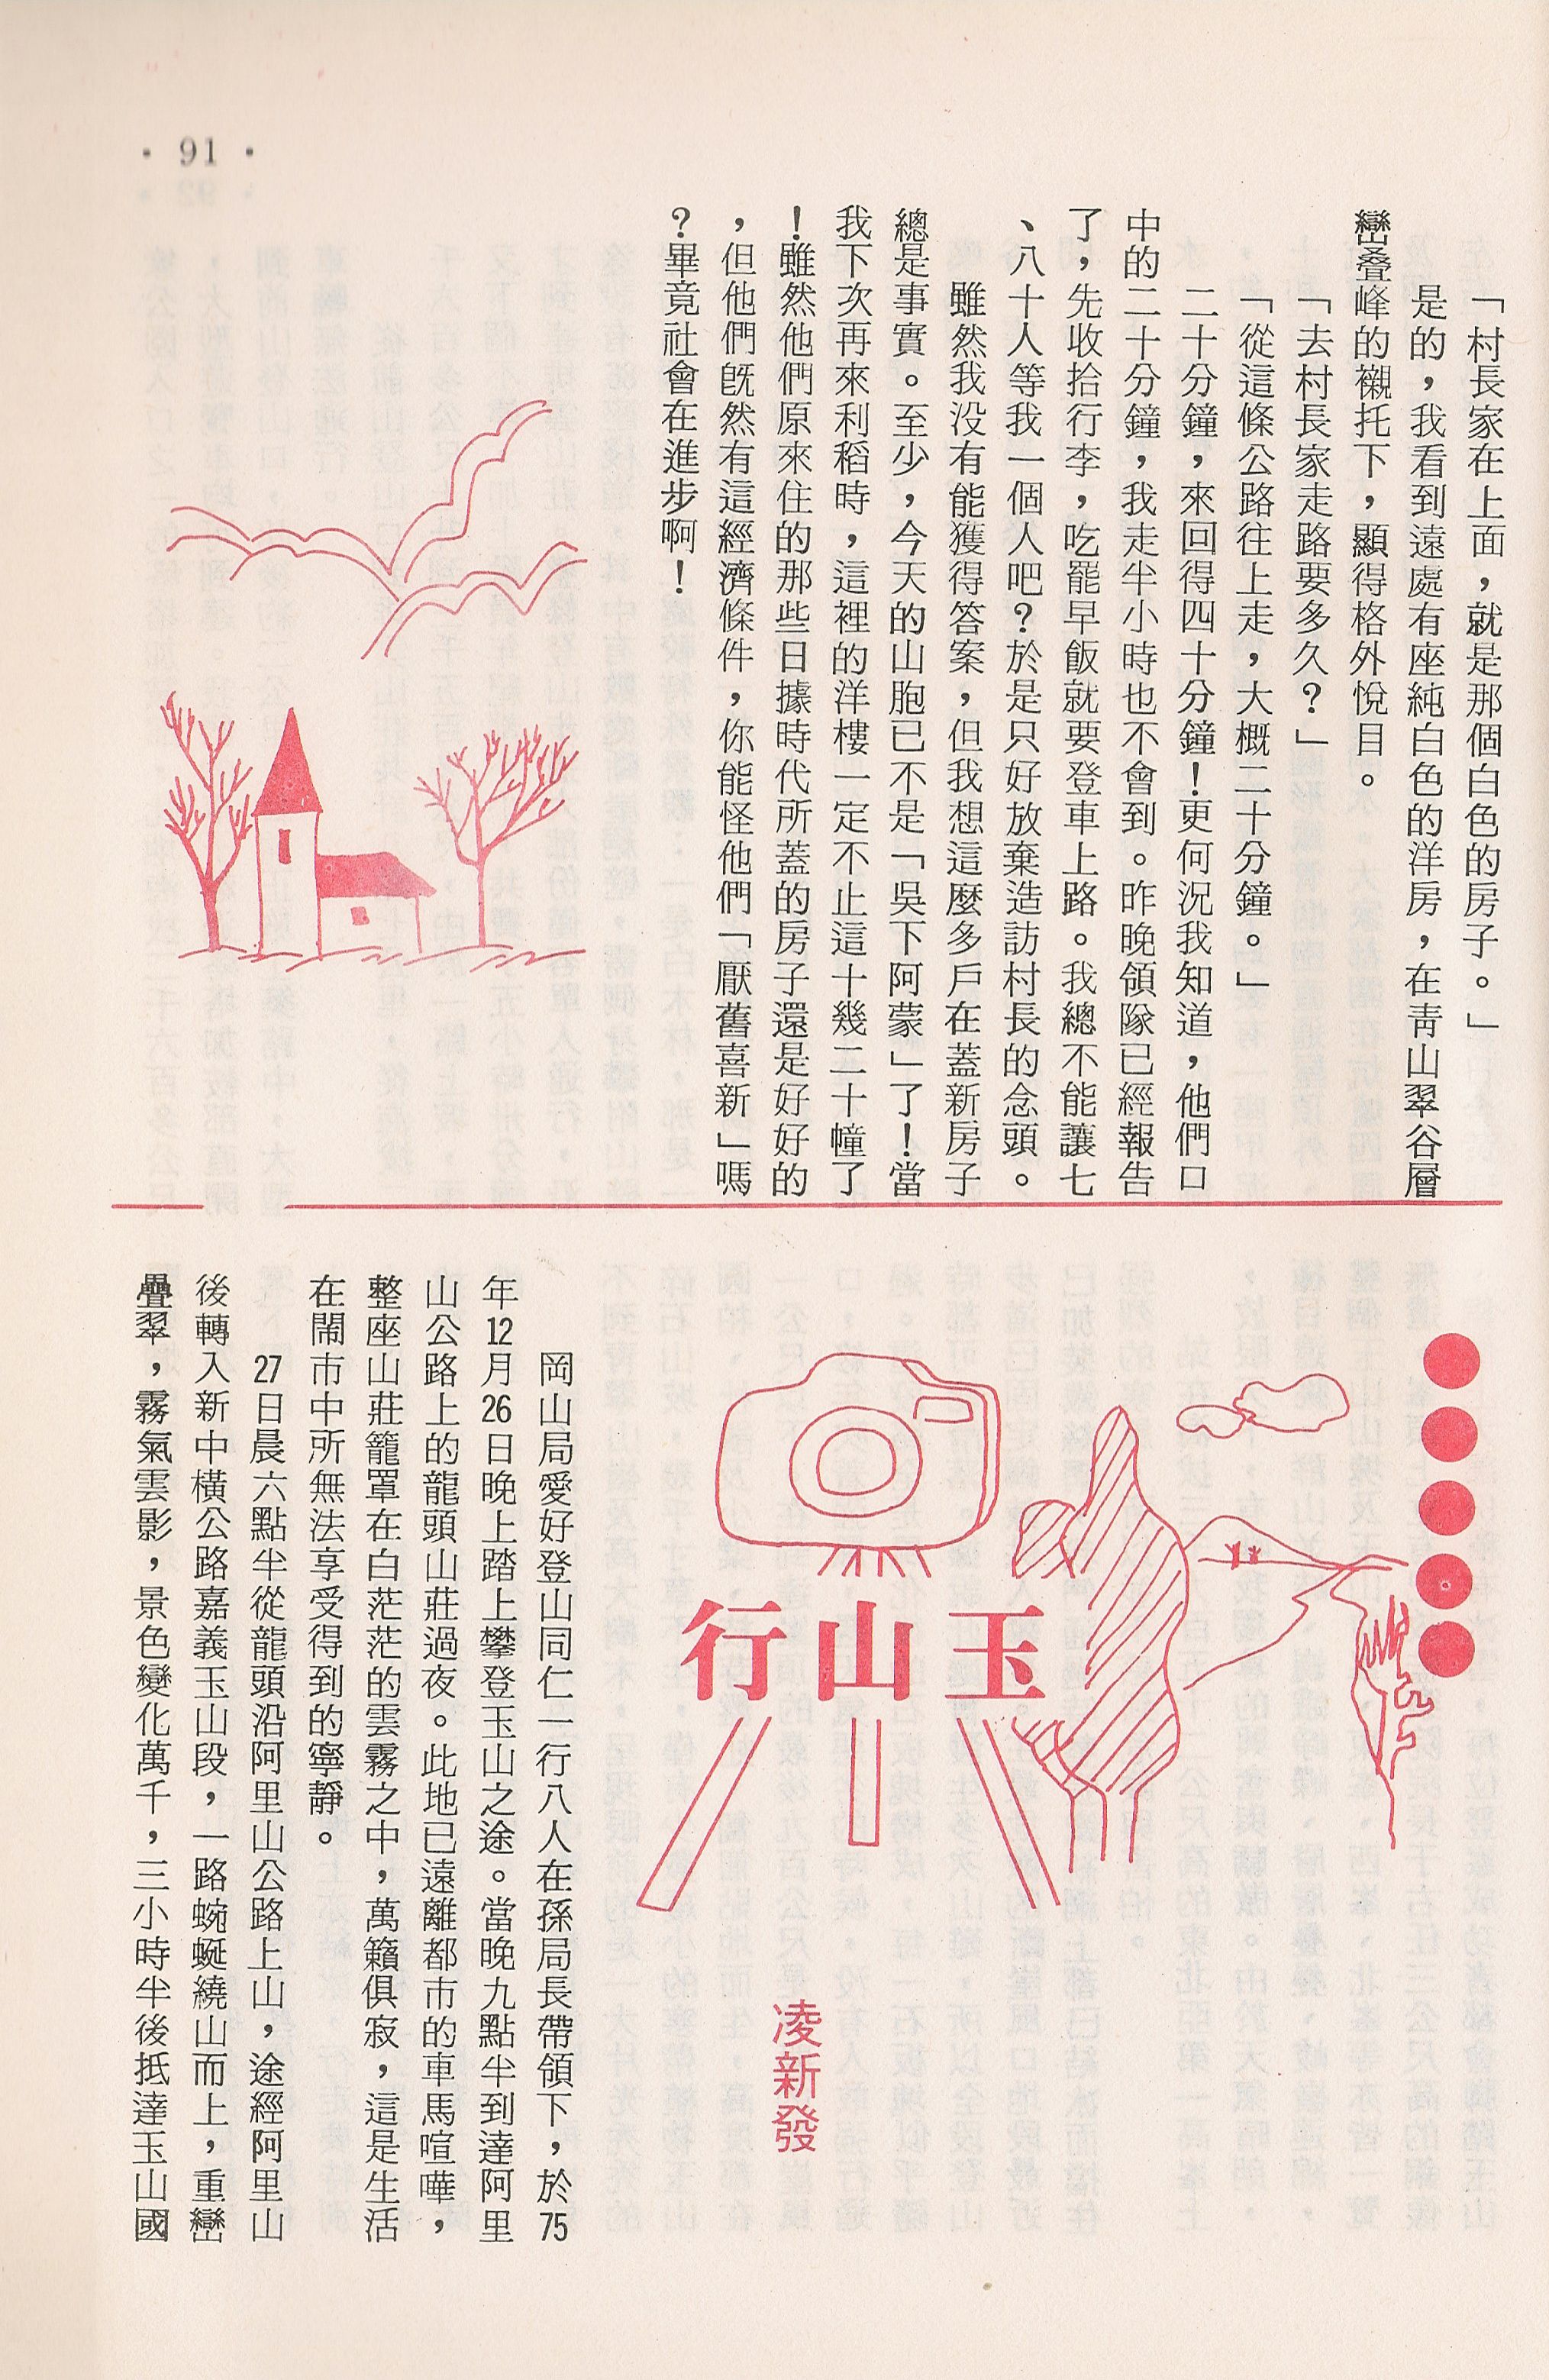 • 91 •
「村長家在上面，就是那個白色的房子。」
是的，我看到遠處有座純白色的洋房，在靑山翠谷層
巒叠峰的襯托下，顯得格外悅目。
「去村長家走路要多久？」
「從這條公路往上走，大概二十分鐘。」
二十分鐘，來回得四十分鐘！更何況我知道，他們口
中的二十分鐘，我走半小時也不會到。昨晚領隊已經報告
了，先收拾行李，吃罷早飯就要登車上路。我總不能讓七
、八十人等我一個人吧？於是只好放棄造訪村長的念頭。
雖然我没有能獲得答案，但我想這麼多戶在蓋新房子
總是事實。至少，今天的山胞已不是「吳下阿蒙」了！當
我下次再來利稻時，這裡的洋樓一定不止這十幾二十幢了
！雖然他們原來住的那些日據時代所蓋的房子還是好好的
，但他們旣然有這經濟條件，你能怪他們「厭舊喜新」嗎
？畢竟社會在進步啊！
玉山行
凌新發
岡山局愛好登山同仁一行八人在孫局長帶領下，於75
年12月26日晚上踏上攀登玉山之途。當晚九點半到達阿里
山公路上的龍頭山莊過夜。此地已遠離都市的車馬喧嘩，
整座山莊籠罩在白茫茫的雲霧之中，萬籟俱寂，這是生活
在鬧市中所無法享受得到的寧靜。
27日晨六點半從龍頭沿阿里山公路上山，途經阿里山
後轉入新中橫公路嘉義玉山段，一路蜿蜒繞山而上，重巒
疊翠，霧氣雲影，景色變化萬千，三小時半後抵達玉山國